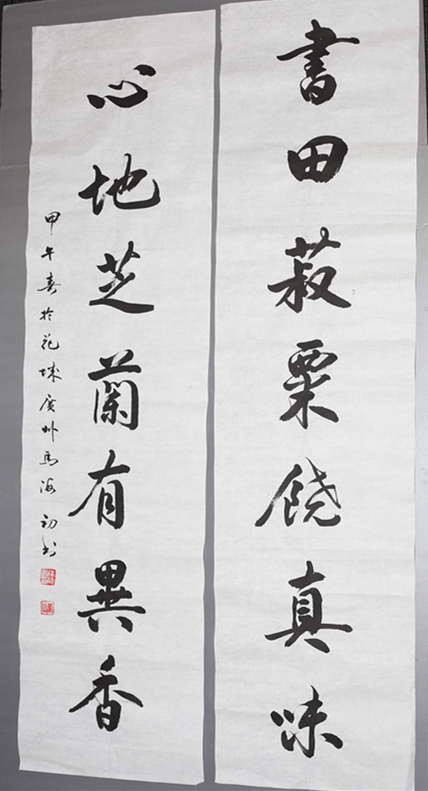 書田菽粟饒真味
心地芝蘭有異香
甲午春於花城廣州馬海初书